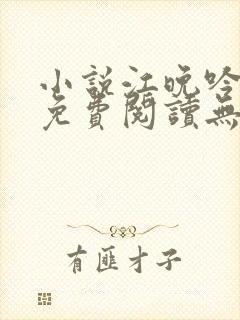 小說江晚吟
免費閱讀無
有匪才子